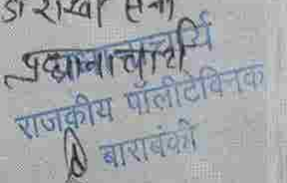 डा
प्रधानाचार्य
राजकीय पॉलीटेक्निक
बाराबंकी